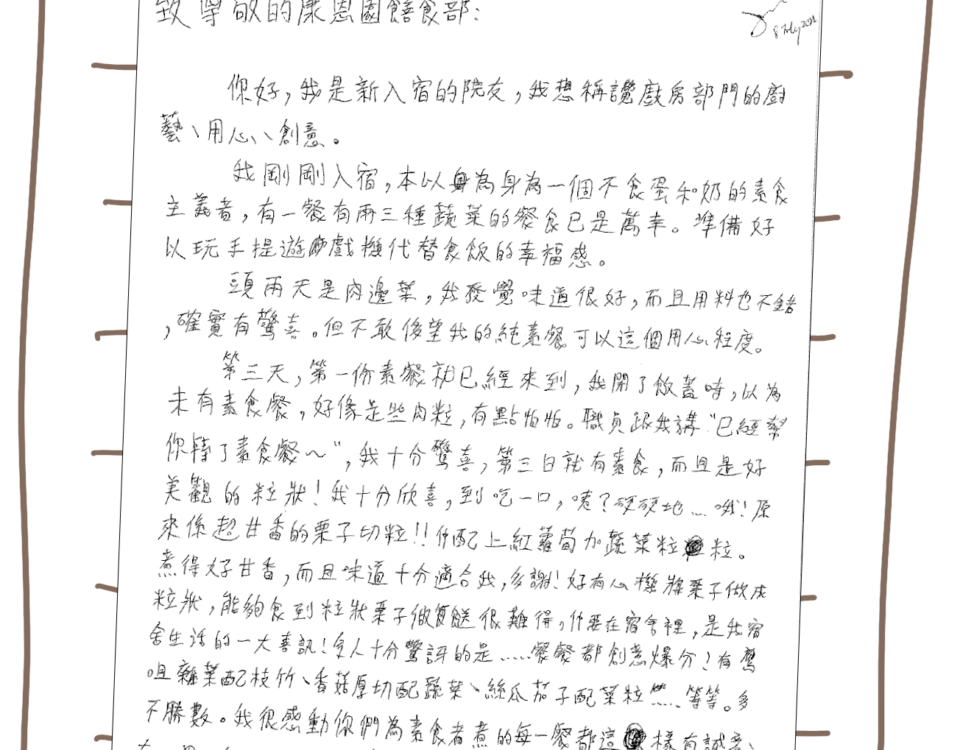 致尊敬的康恩園饍食部:
8 July 202
你好,我是新入宿的院友,我想稱讚廚房部門的廚
藝、用心、創意。
我剛剛入宿,本以身為身為一個不食蛋和奶的素食
主義者,有一餐有兩三種蔬菜的餐食已是萬幸。準備好
以玩手提遊戲機代替食飯的幸福感。
頭兩天是肉邊菜,我發覺味道很好,而且用料也不錯
,確實有驚喜。但不敢後望我的純素餐可以這個用心程度。
第三天,第一份素餐就已經來到,我開了飯蓋時,以為
未有素食餐,好像是些肉粒,有點怕怕。職員跟我講"已經幫
你轉了素食餐~",我十分驚喜,第三日就有素食,而且是好
美觀的粒狀!我十分欣喜,到吃一口,噫?硬硬地...哦!原
來係超甘香的栗子切粒!!什配上紅蘿蔔加蔬菜粒粒。
煮得好甘香,而且味道十分適合我,多謝!好有心機將栗子做成
粒狀,能夠食到粒狀栗子做餸很難得,什至在宿舍裡,是我宿
舍生活的一大喜訊!令人十分驚訝的是.....餐餐都創意爆分!有鷹
咀雜菜配枝竹、香菇厚切配蔬菜、絲瓜茄子配菜粒....等等。多
不勝數。我很感動你們為素食者煮的每一餐都這樣有誠意、